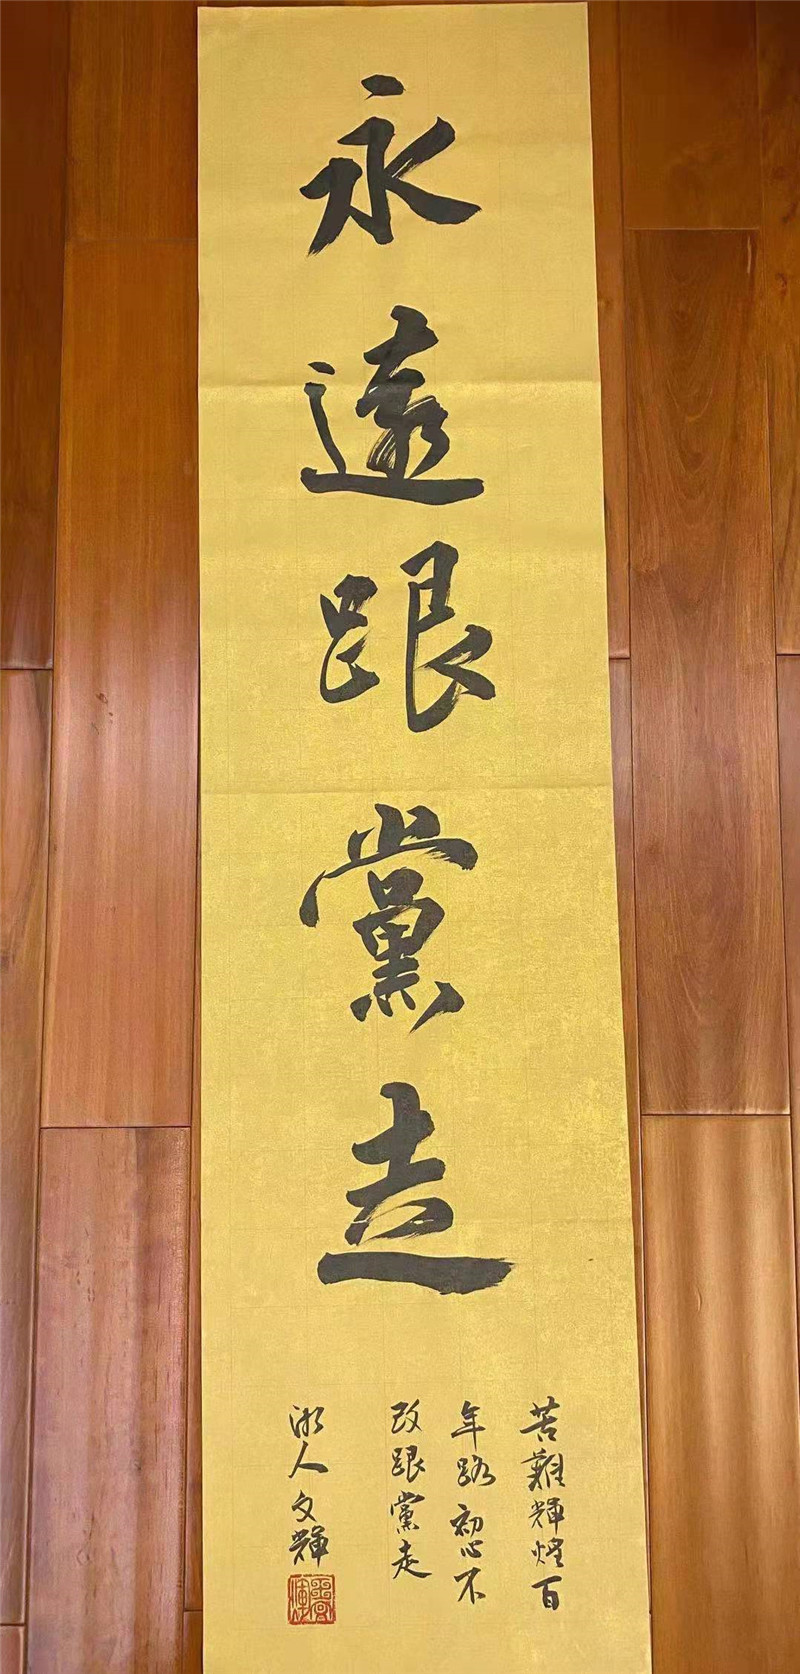 永遠跟黨走
苦難輝煌百
年路初心不
改跟黨走
浙人文輝